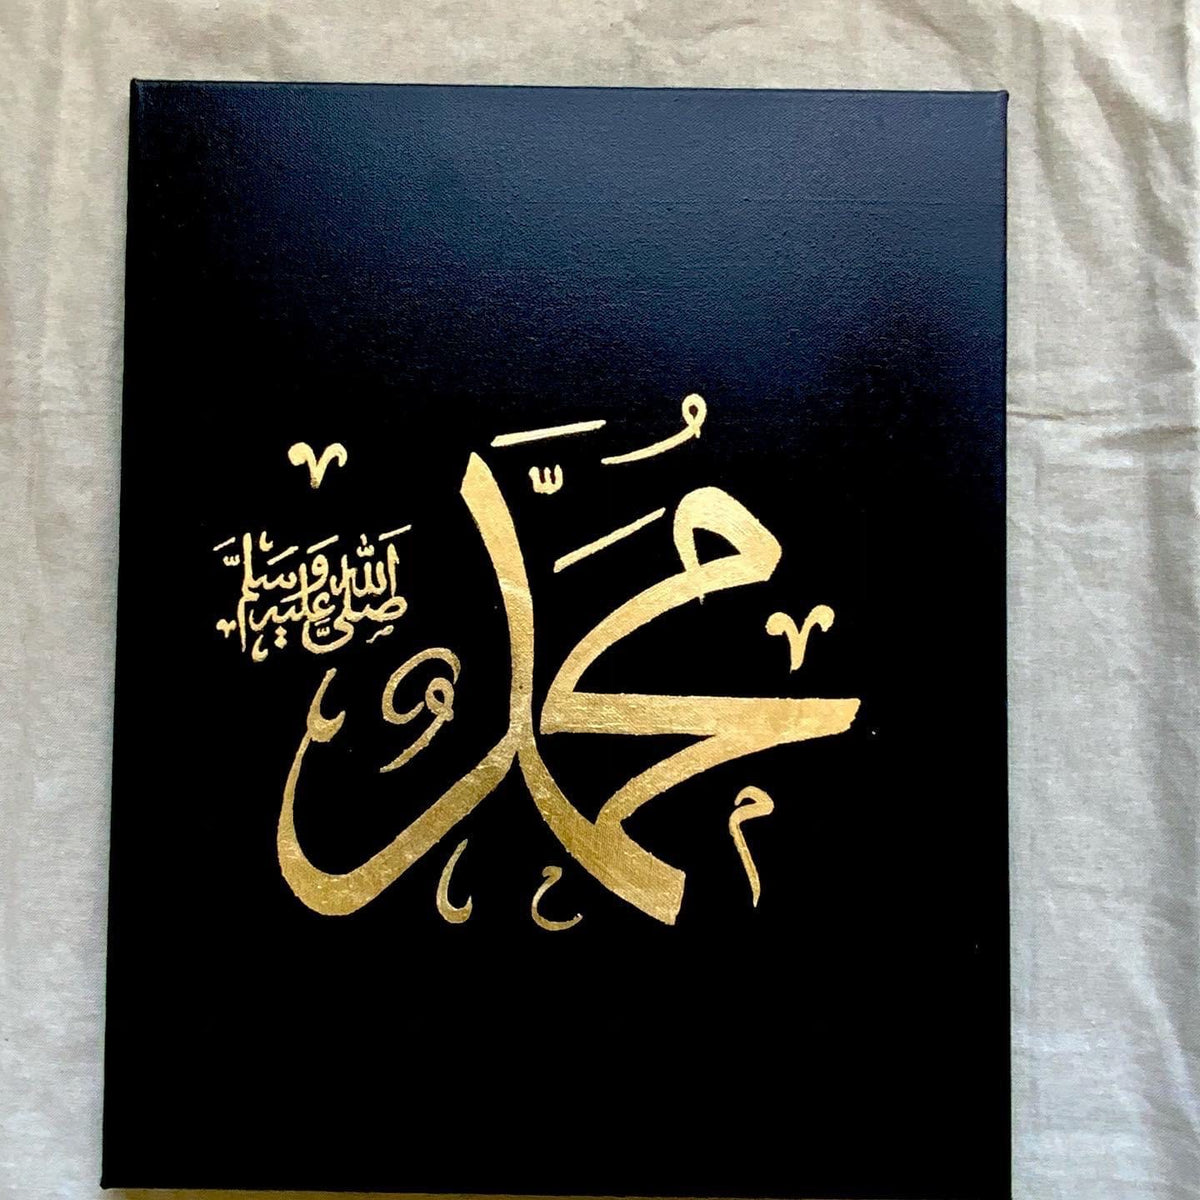 مُحَمَّدٌ
صَلَّى اللهُ عَلَيْهِ وَسَلَّمَ